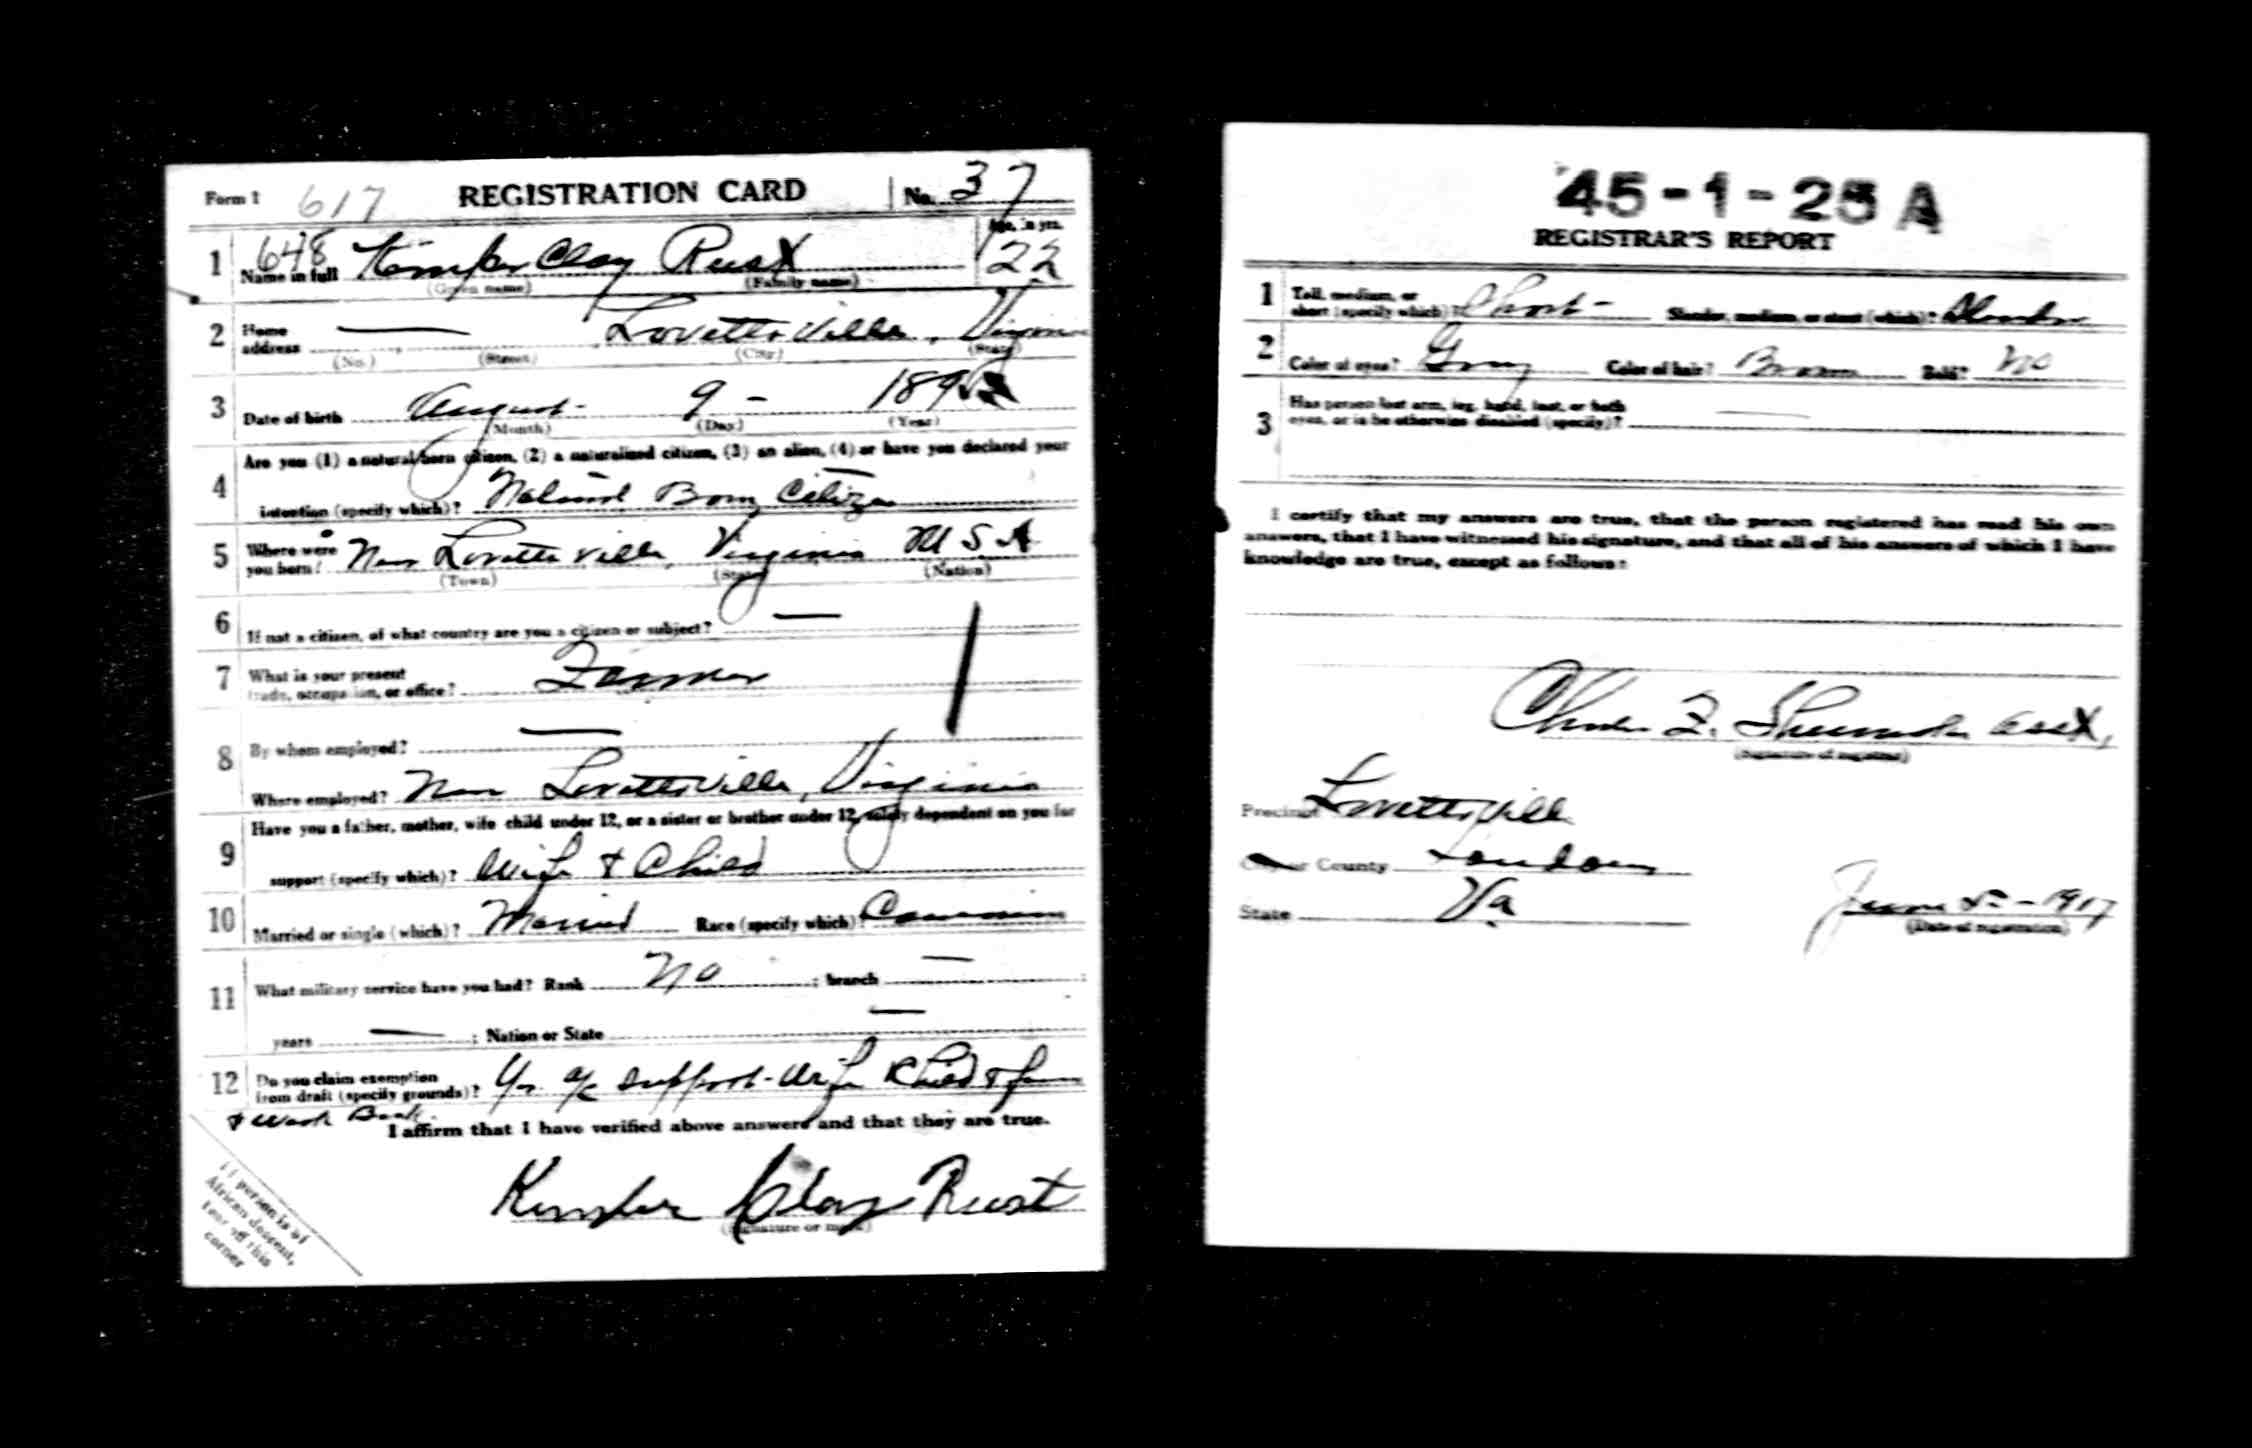 Form 1 617 REGISTRATION CARD No. 37
Age, in yrs.
1 648 Name in full Kemper Clay Rust 22
(Given name) (Family name)
2 Home address Lovettsville, Virginia
(No.) (Street) (City) (State)
3 Date of birth August 9 - 189
(Month) (Day) (Year)
Are you (1) a natural born citizen, (2) a naturalized citizen, (3) an alien, (4) or have you declared your
4 intention (specify which)? Natural Born Citizen
5 Where were you born? Near Lovettsville, Virginia U S A
(Town) (State) (Nation)
6 If not a citizen, of what country are you a citizen or subject?
7 What is your present trade, occupation, or office? Farmer
8 By whom employed?
Where employed? Near Lovettsville, Virginia
Have you a father, mother, wife child under 12, or a sister or brother under 12, solely dependent on you for
9 support (specify which)? Wife & Child
10 Married or single (which)? Married Race (specify which)? Caucasian
11 What military service have you had? Rank No ; branch ;
years ; Nation or State
12 Do you claim exemption from draft (specify grounds)? Yes a/c support - Wife Child &
& Weak Back.
I affirm that I have verified above answers and that they are true.
Kemper Clay Rust
(Signature or mark)
If person is of
African descent,
tear off this
corner
45-1-25 A
REGISTRAR'S REPORT
1 Tall, medium, or short (specify which)? Short - Slender, medium, or stout (which)? Slender
2 Color of eyes? Gray Color of hair? Brown Bald? No
3 Has person lost arm, leg, hand, foot, or both
eyes, or is he otherwise disabled (specify)?
I certify that my answers are true, that the person registered has read his own
answers, that I have witnessed his signature, and that all of his answers of which I have
knowledge are true, except as follows:
F. asst,
(Signature of registrar)
Precinct Lovettsville
or County Loudoun
State Va June 5 - 1917
(Date of registration)